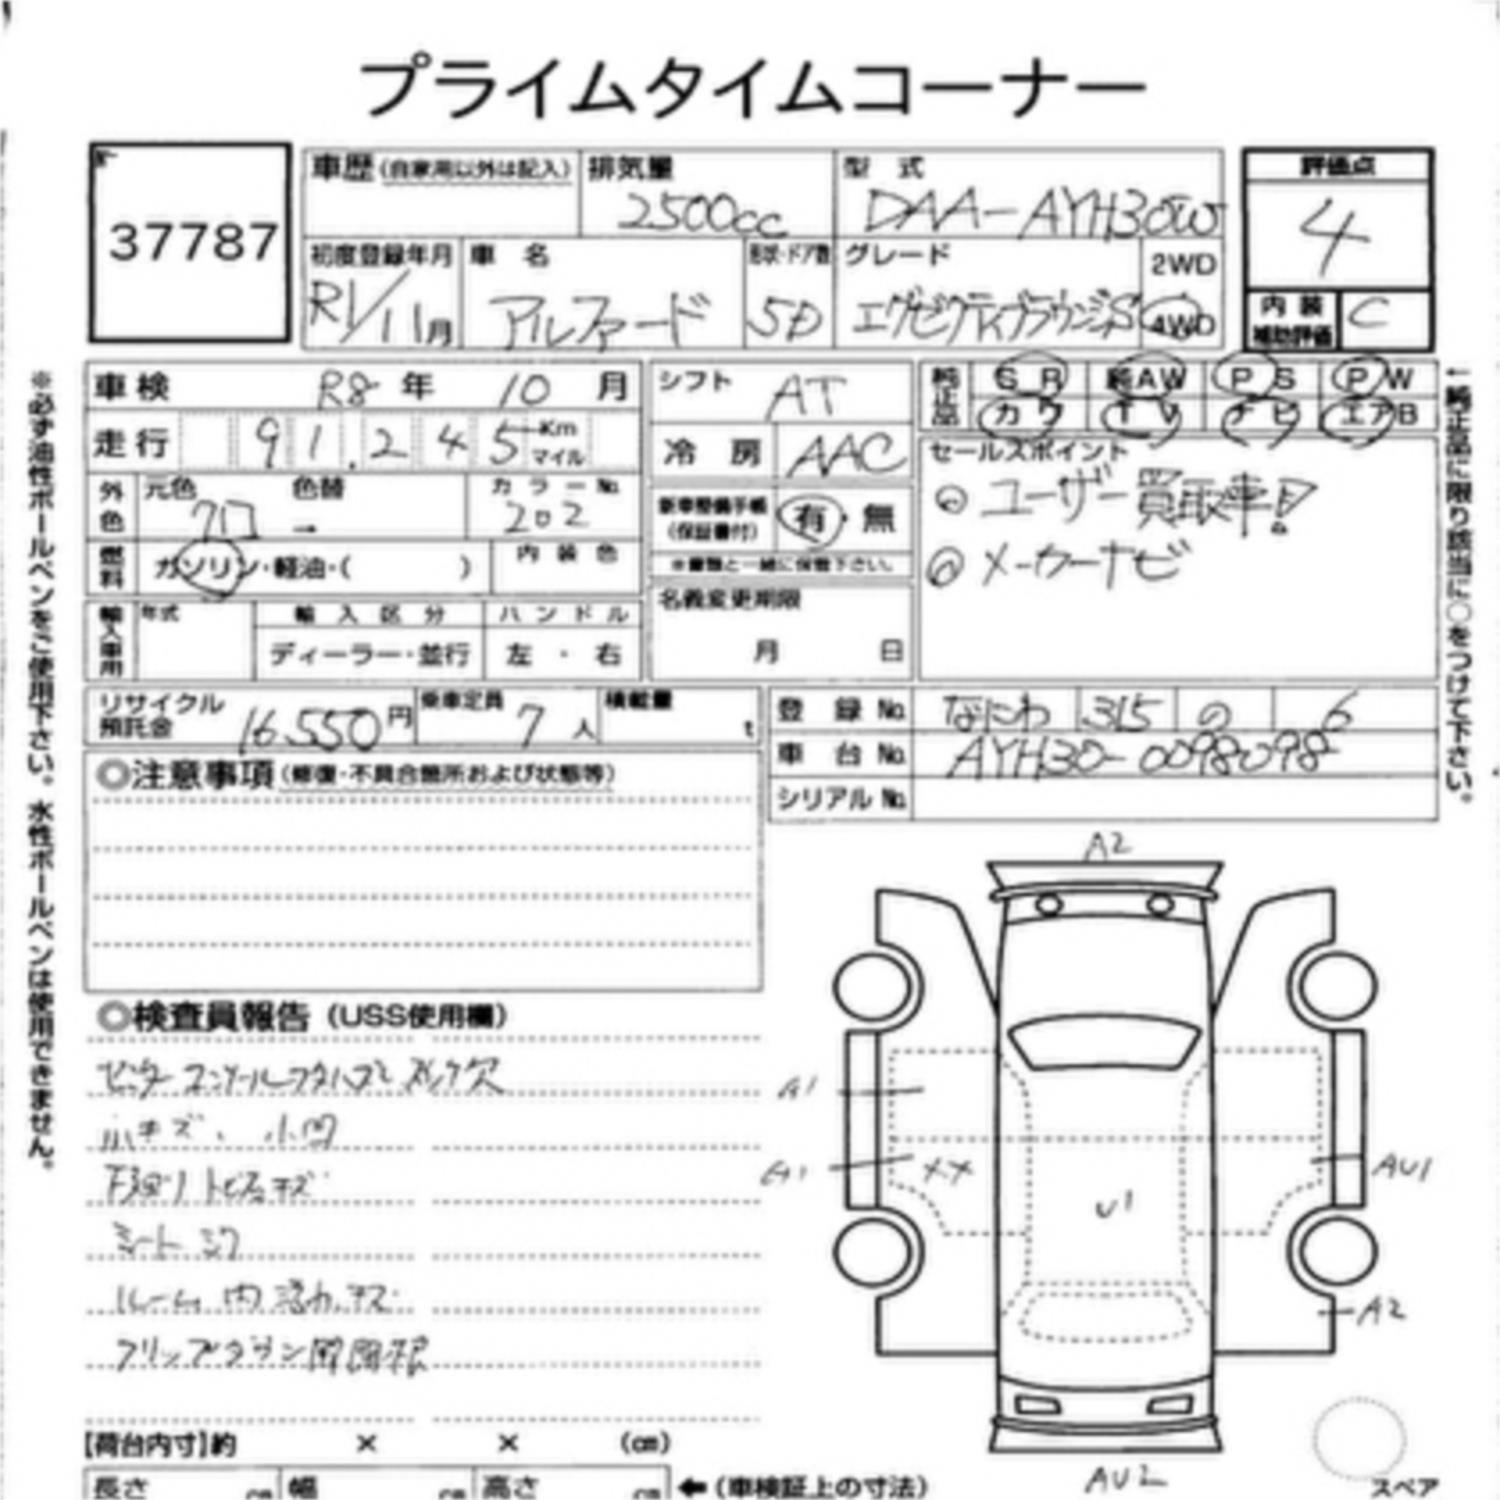 プライムタイムコーナー
37787
車歴(自家用以外は記入) 排気量 2500cc 型式 DAA-AYH30W
初度登録年月 R1/11月 車名 アルファード 形状・ドア数 5D グレード エグゼクティブラウンジS 2WD 4WD
評価点 4
内装補助評価 C
車検 R8年 10月
走行 91.245 Km マイル
外色 元色 クロ 色替 → カラーNo. 202
燃料 ガソリン・軽油・( ) 内装色
輸入車用 年式 輸入区分 ディーラー・並行 ハンドル 左・右
シフト AT
冷房 AAC
新車整備手帳(保証書付) 有・無
※書類と一緒に保管下さい。
名義変更期限 月 日
純正品 SR 純AW PS PW
カワ TV ナビ エアB
セールスポイント
◎ ユーザー買取車!
◎ メーカーナビ
リサイクル預託金 16550円 乗車定員 7人 積載量 t
登録No. なにわ 315 の 6
車台No. AYH30-0098098
シリアルNo.
◎注意事項(修復・不具合箇所および状態等)
◎検査員報告(USS使用欄)
小キズ、小凹
下廻りトビ石キズ
シートシワ
ルーム内 キズ
フリップダウン
【荷台内寸】約 × × (cm)
長さ cm 幅 cm 高さ cm ←(車検証上の寸法)
A2
A1
A1
XX
U1
AU1
A2
AU2
スペア
※必ず油性ボールペンをご使用下さい。水性ボールペンは使用できません。
←純正品に限り該当に○をつけて下さい。